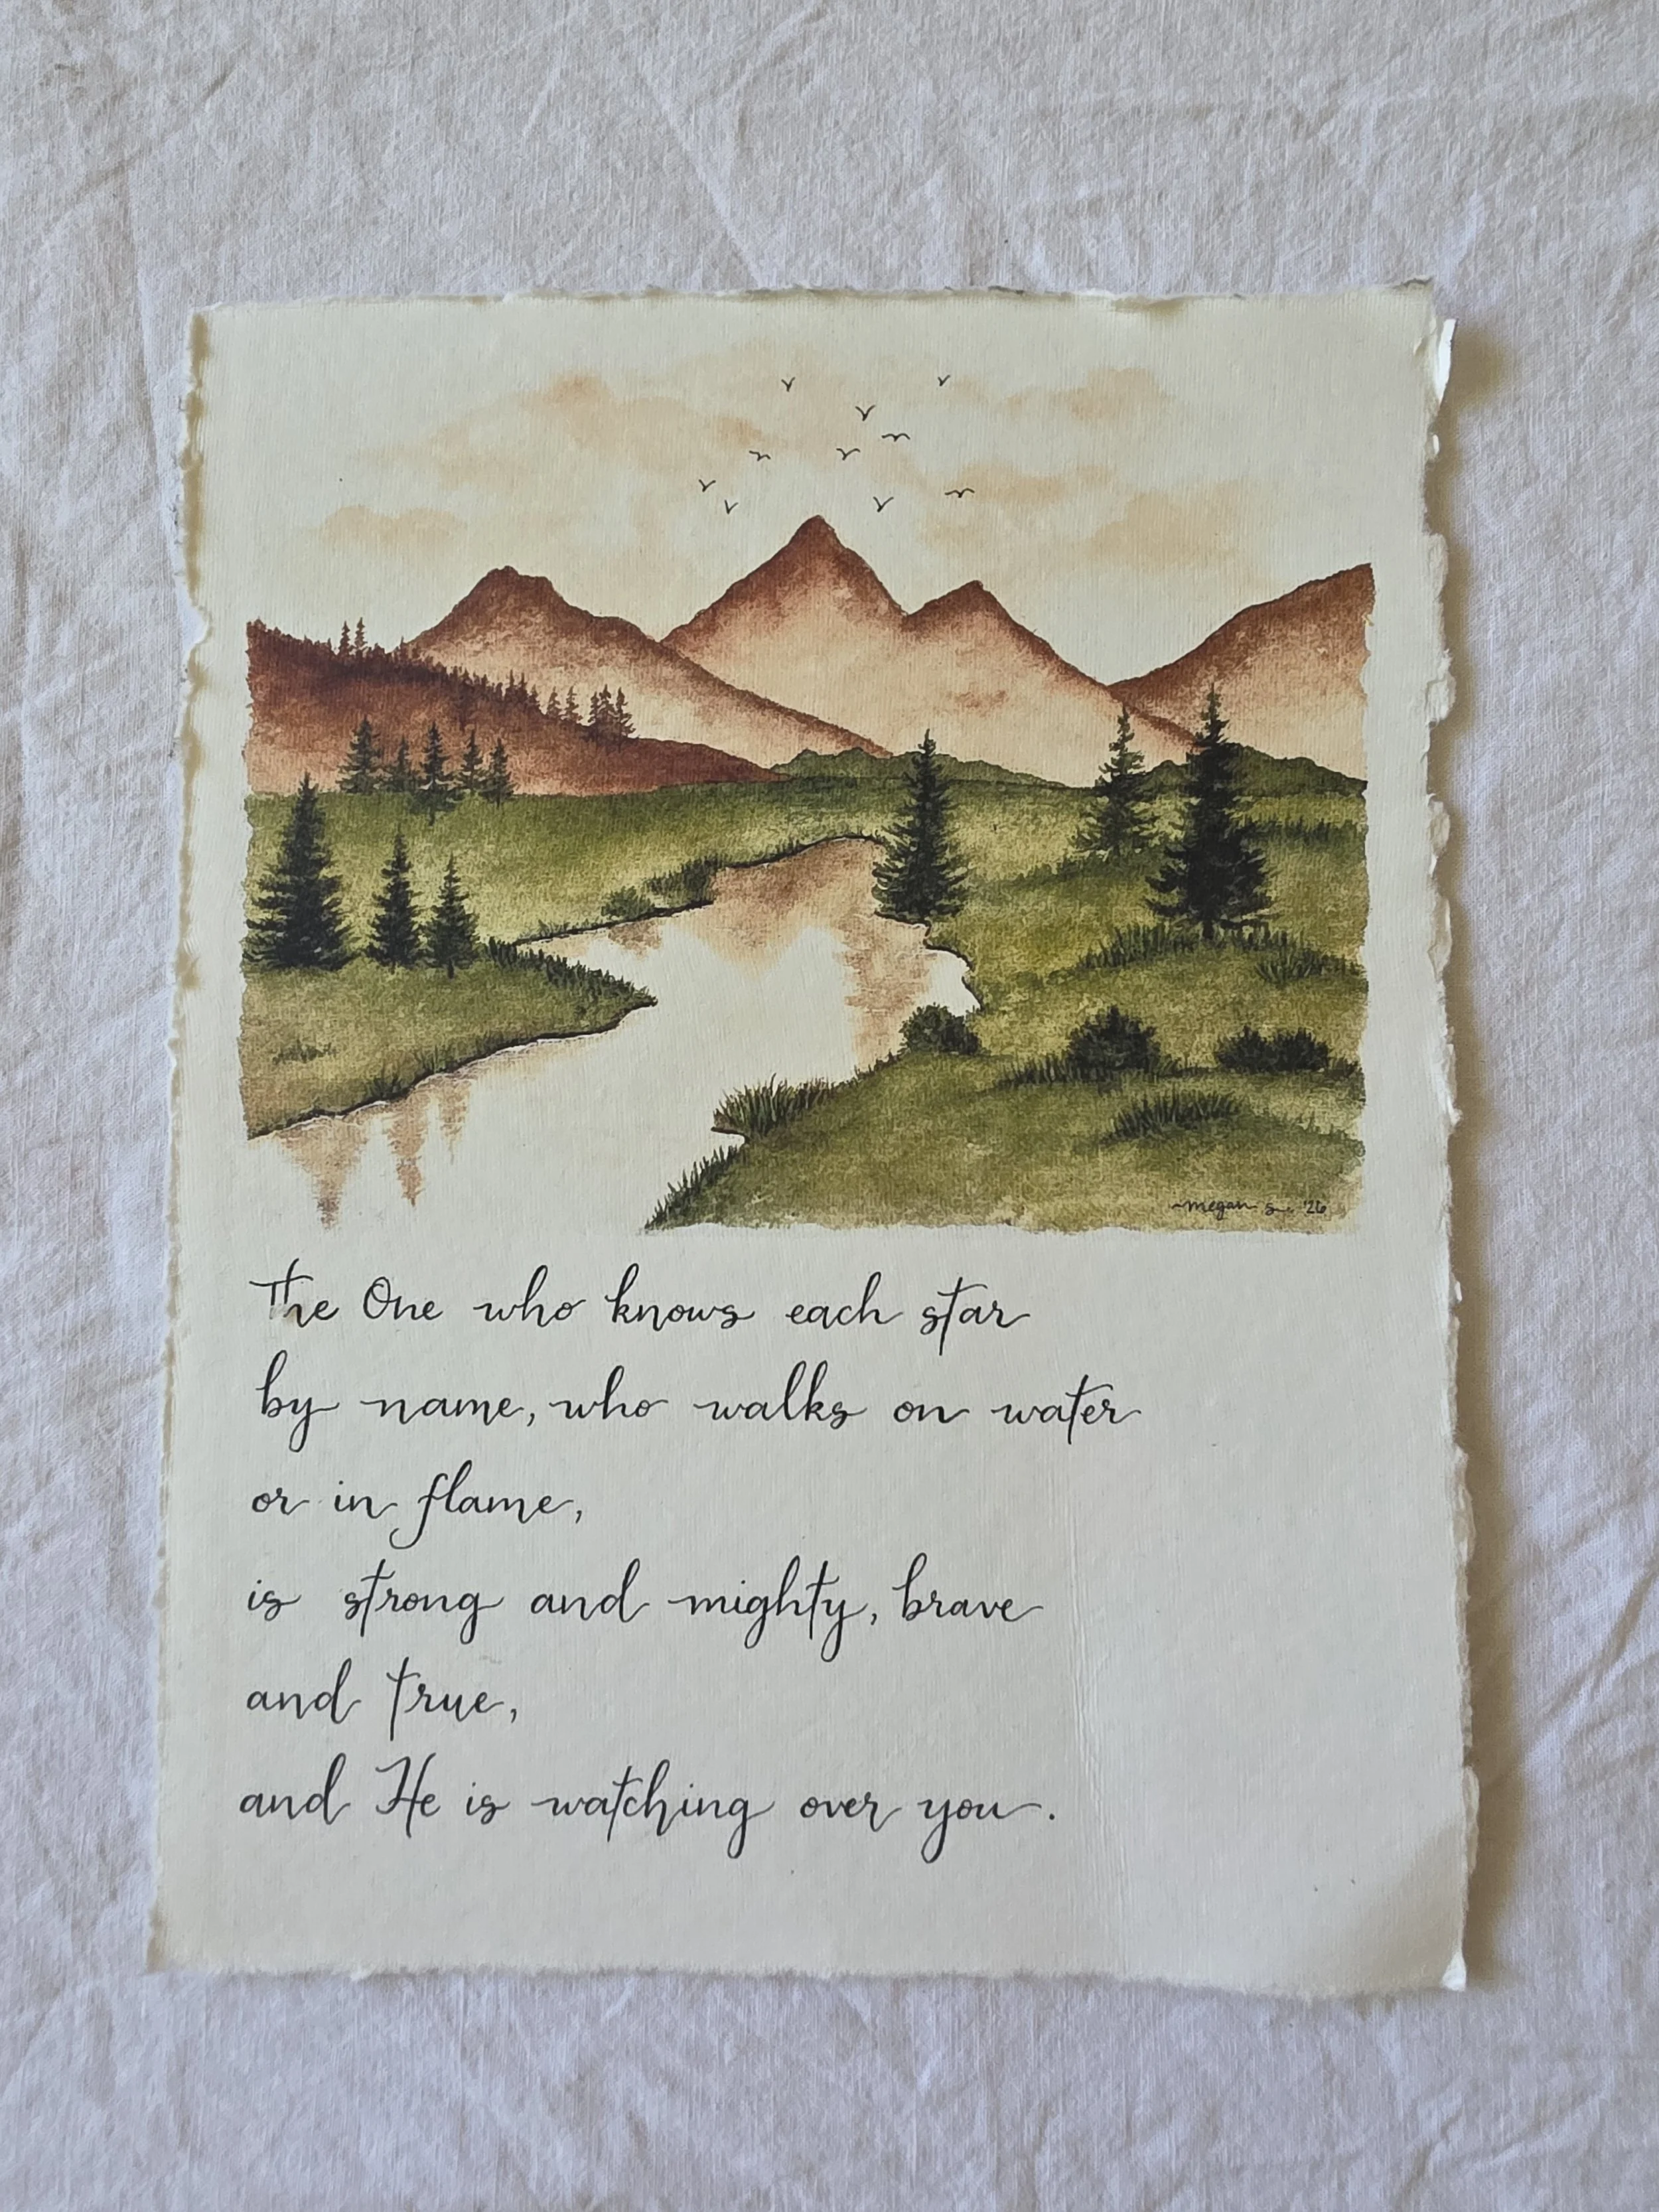 ~megan s. '26
The One who knows each star
by name, who walks on water
or in flame,
is strong and mighty, brave
and true,
and He is watching over you.